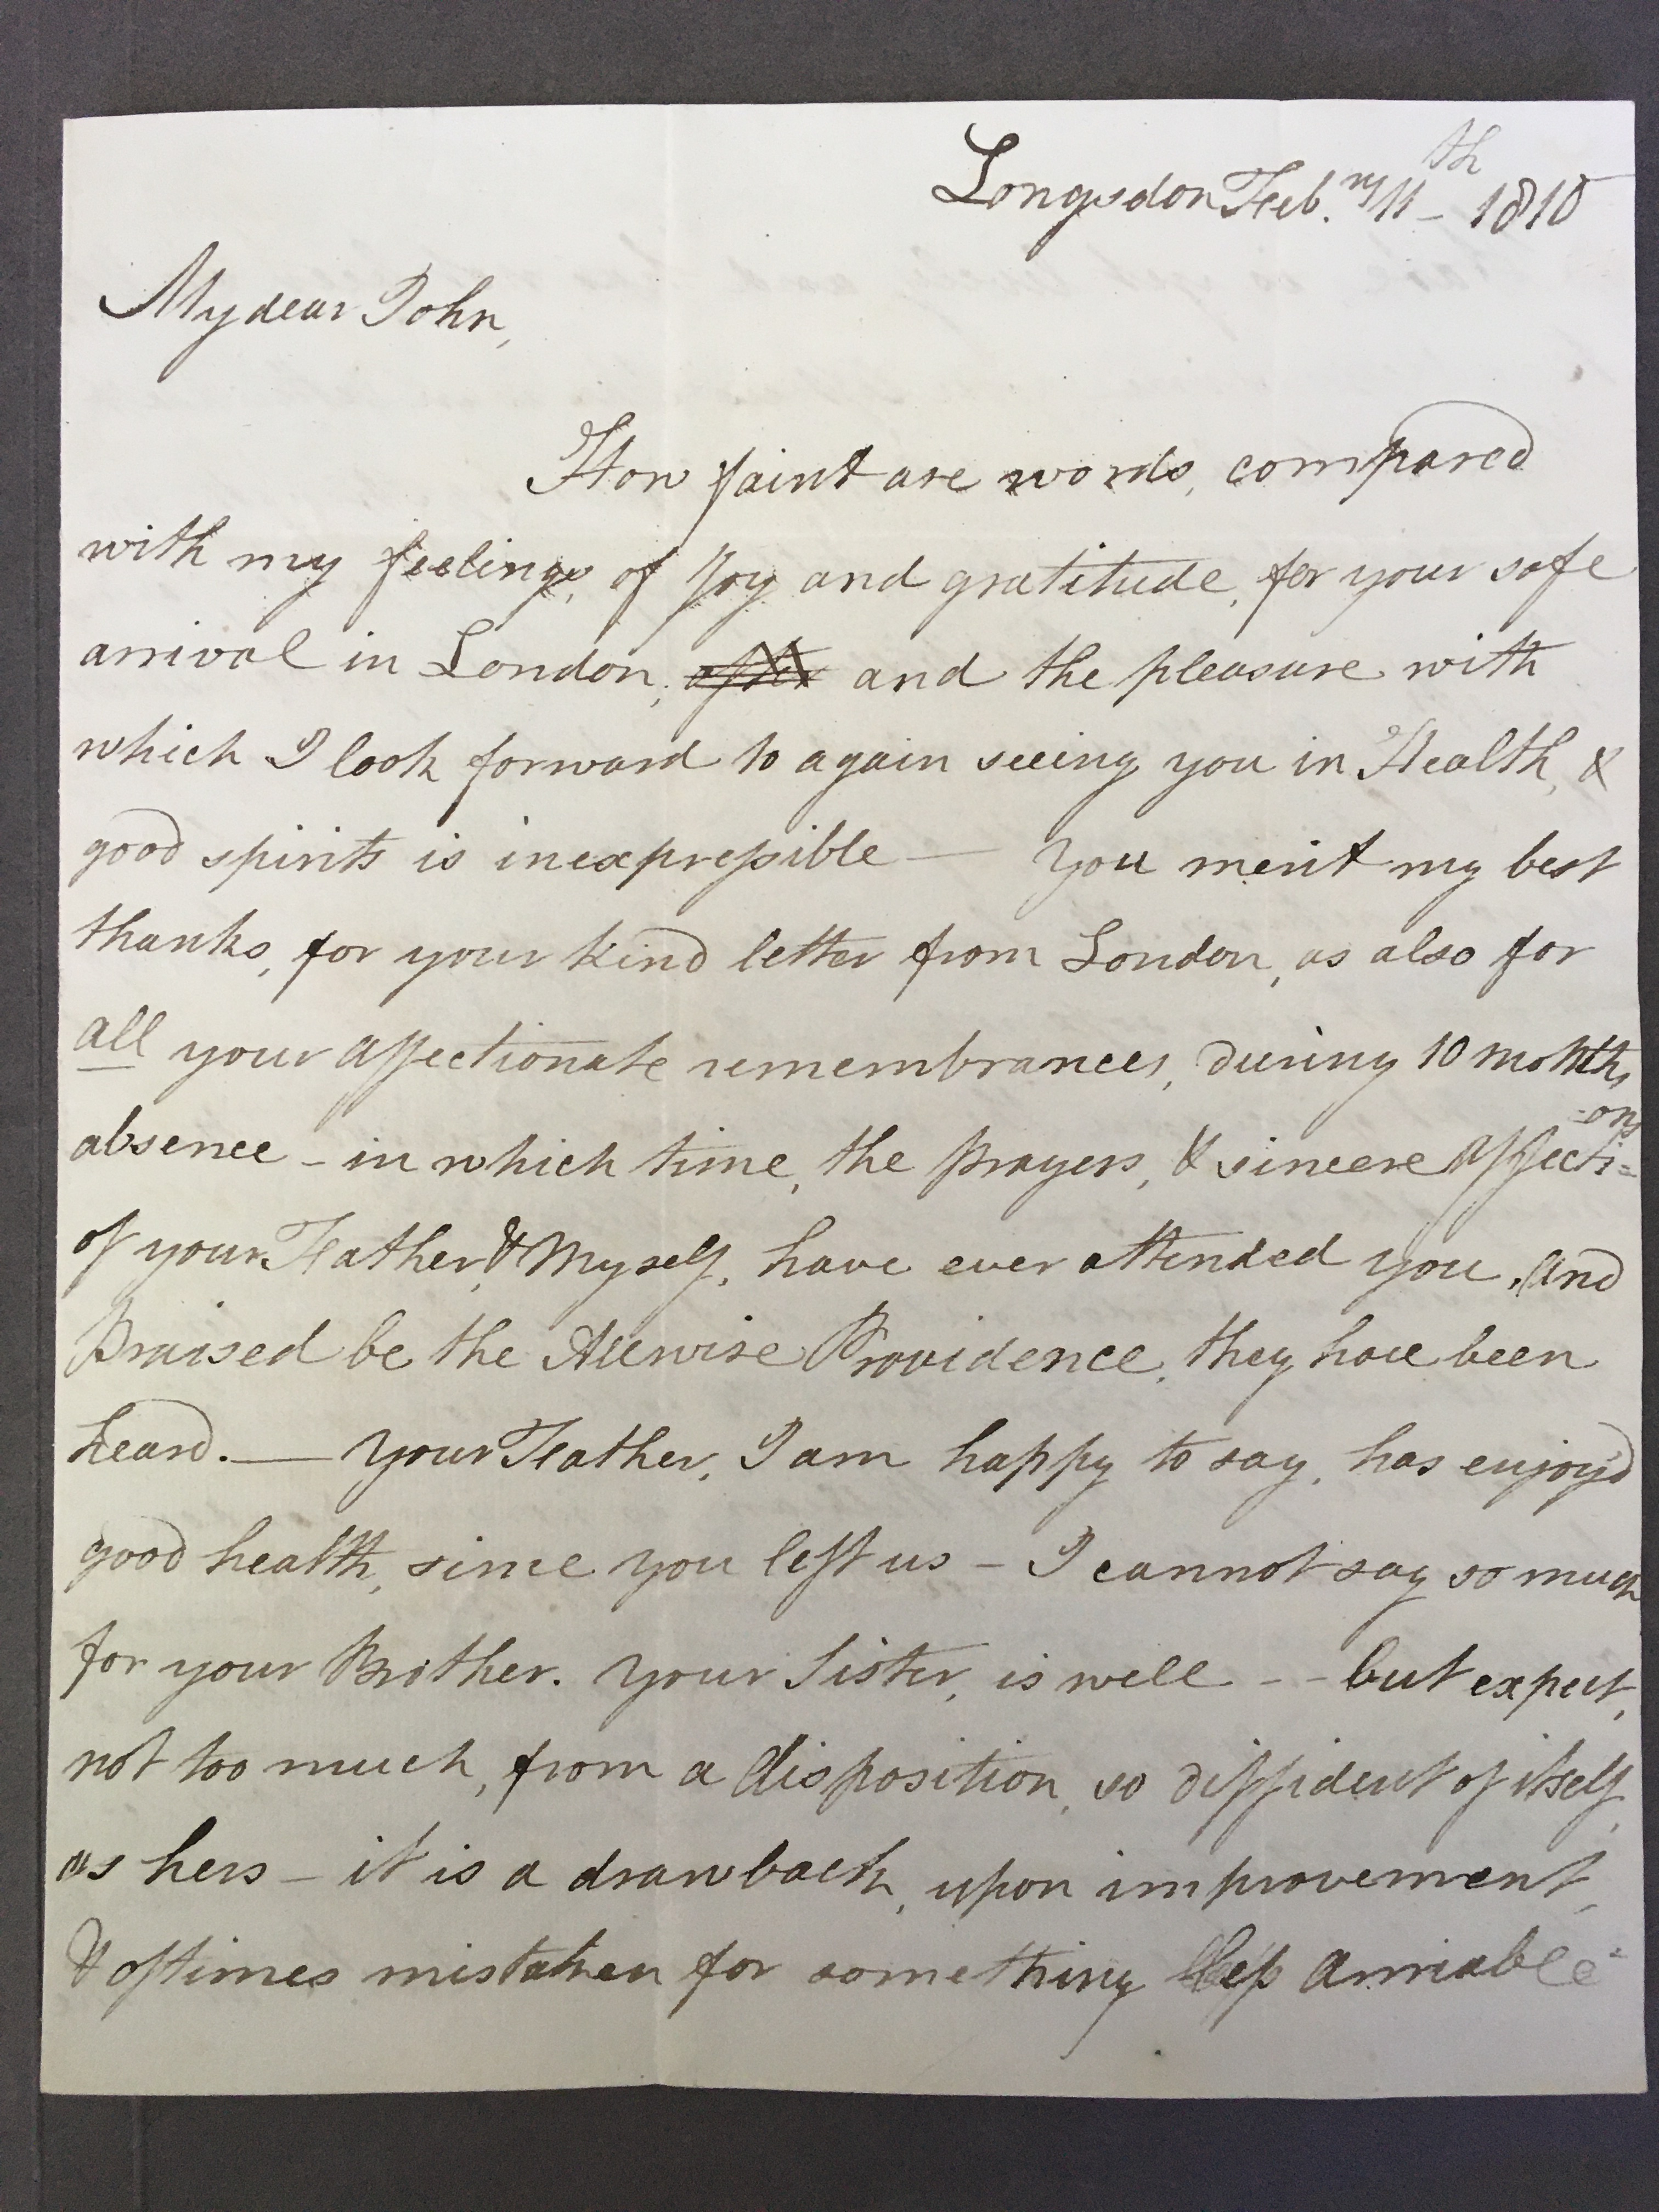 Longsdon Feb.ry 11th - 1810
My dear John,
How faint are words, compared
with my feelings, of Joy and gratitude, for your safe
arrival in London, after and the pleasure with
which I look forward to again seeing you in Health, &
good spirits is inexpressible — You merit my best
thanks, for your kind letter from London, as also for
all your affectionate remembrances, during 10 months
absence - in which time, the Prayers, & sincere affecti=
-ons
of your Father, & Myself, have ever attended you, and
Praised be the Allwise Providence, they have been
heard. — Your Father, I am happy to say, has enjoy'd
good health, since you left us - I cannot say so much
for your Brother. Your Sister, is well - - but expect,
not too much, from a disposition, so diffident of itself,
as hers - it is a drawback, upon improvement,
& oftimes mistaken for something less amiable